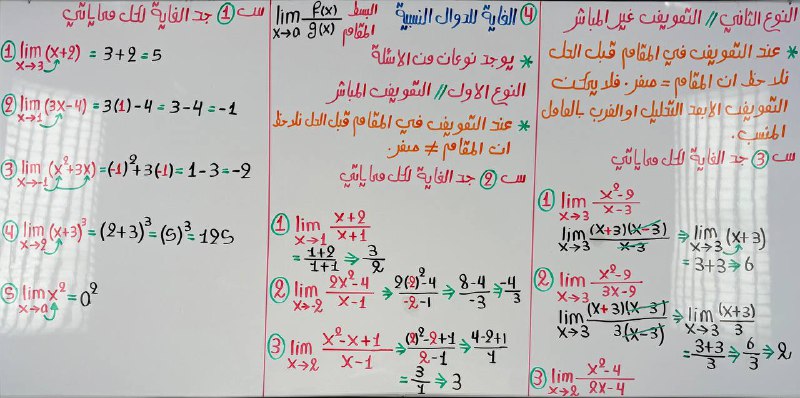 س ① جد الغاية لكل مما يأتي
① lim x→3 (x+2) = 3+2 = 5
② lim x→1 (3x-4) = 3(1)-4 = 3-4 = -1
③ lim x→-1 (x²+3x) = (-1)²+3(-1) = 1-3 = -2
④ lim x→2 (x+3)³ = (2+3)³ = (5)³ = 125
⑤ lim x→a x² = a²
④ الغاية للدوال النسبية البسط المقام lim x→a f(x)/g(x)
* يوجد نوعان من الاسئلة
النوع الاول // التعويض المباشر
* عند التعويض في المقام قبل الحل نلاحظ
ان المقام ≠ صفر.
س ② جد الغاية لكل مما يأتي
① lim x→1 (x+2)/(x+1)
= (1+2)/(1+1) ⇒ 3/2
② lim x→-2 (2x²-4)/(x-1) ⇒ (2(2)²-4)/(-2-1) ⇒ (8-4)/-3 ⇒ -4/3
③ lim x→2 (x²-x+1)/(x-1) ⇒ ((2)²-2+1)/(2-1) ⇒ (4-2+1)/1
= 3/1 ⇒ 3
النوع الثاني // التعويض غير المباشر
* عند التعويض في المقام قبل الحل
نلاحظ ان المقام = صفر. فلا يمكن
التعويض الا بعد التحليل او الضرب بالعامل
المنسب.
س ③ جد الغاية لكل مما يأتي
① lim x→3 (x²-9)/(x-3)
lim x→3 (x+3)(x-3)/(x-3) ⇒ lim x→3 (x+3)
= 3+3 ⇒ 6
② lim x→3 (x²-9)/(3x-9)
lim x→3 (x+3)(x-3)/3(x-3) ⇒ lim x→3 (x+3)/3
= (3+3)/3 ⇒ 6/3 ⇒ 2
③ lim x→2 (x²-4)/(2x-4)